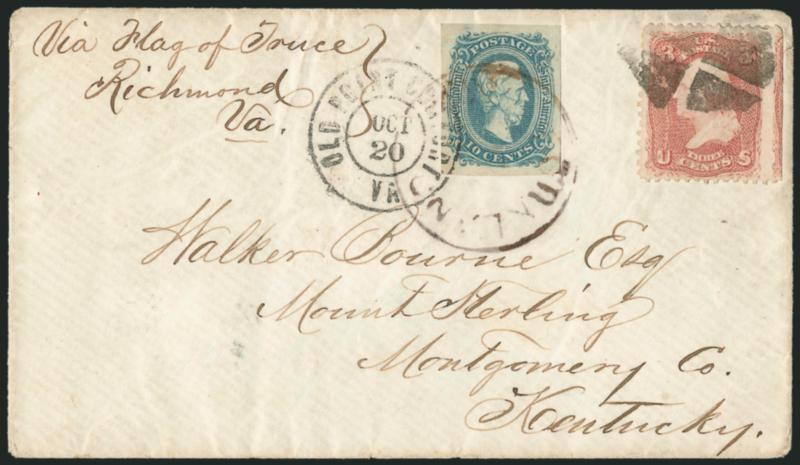 Via Flag of Truce
Richmond
Va.
OLD POINT COMFORT
OCT
20
VA
POSTAGE
10 CENTS
U.S.
POSTAGE
3 3
U S
THREE
CENTS
Walker Bourne Esq
Mount Sterling
Montgomery Co.
Kentucky.